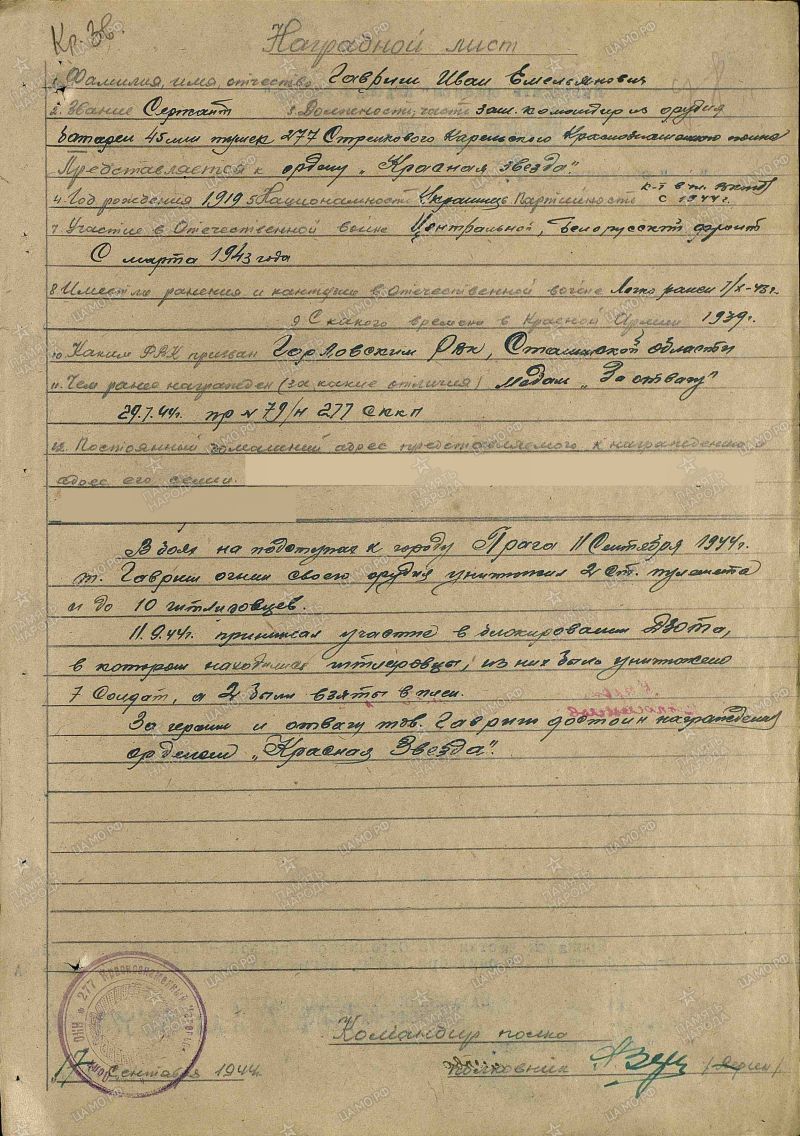 Кр. Зв.
Наградной лист
1. Фамилия, имя, отчество Гавриш Иван Емельянович
2. Звание Сержант 3. Должность, часть зам. командира орудия
батареи 45 мм пушек 277 Стрелкового Карельского Краснознаменного полка
Представляется к ордену „Красная звезда".
4. Год рождения 1919 5 Национальность Украинец 6 Партийность к-т в чл. ВКП(б)
с 1944 г.
7 Участие в Отечественной войне Центральной, Белорусский фронт
С марта 1943 года
8 Имеет ли ранения и контузии в отечественной войне Легко ранен 7/X-43 г.
9 С какого времени в Красной Армии 1939 г.
10. Каким РВК призван Горловским РВК, Сталинской области
11. Чем ранее награжден (за какие отличия) Медаль „За отвагу"
29.7.44 г. пр № 79/н 277 СККП
12. Постоянный домашний адрес представляемого к награждению и
адрес его семьи.
В боях на подступах к городу Прага 11 Сентября 1944 г.
т. Гавриш огнем своего орудия уничтожил 2 ст. пулемета
и до 10 гитлеровцев.
11.9.44 г. принимал участие в блокировании ДЗОТа,
в котором находились гитлеровцы, из них было уничтожено
7 Солдат, а 2 были взяты в плен.
За героизм и отвагу тов. Гавриш достоин награждения
орденом „Красная Звезда".
Командир полка
17 Сентября 1944 г. полковник
277 Краснознаменный
ПАМЯТЬ НАРОДА
ЦАМО.РФ